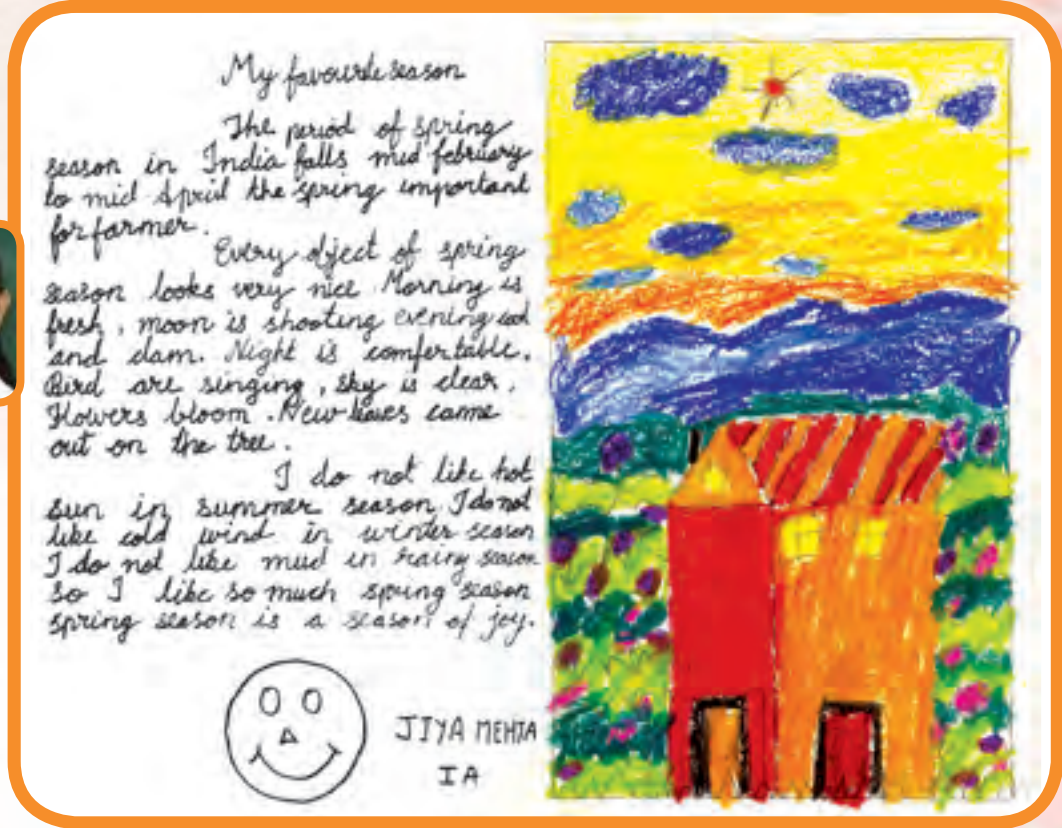 My favourite season
The period of spring
season in India falls mid february
to mid April the spring important
for farmer.
Every object of spring
season looks very nice. Morning is
fresh, moon is shooting evening cool
and clam. Night is comfertable.
Bird are singing, sky is clear.
Flowers bloom. New leaves came
out on the tree.
I do not like hot
sun in summer season. I do not
like cold wind in winter season
I do not like mud in rainy season
So I like so much spring season
spring season is a season of joy.
JIYA MEHTA
IA